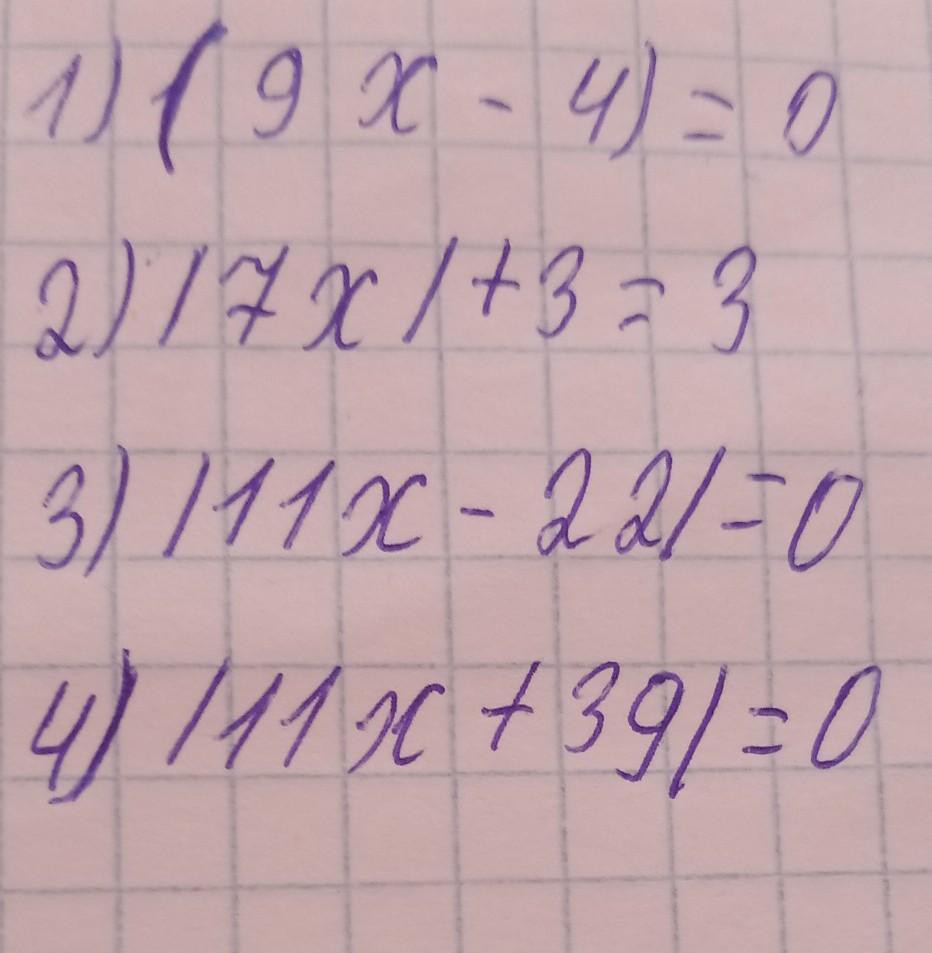 1) (9x - 4) = 0
2) |7x| + 3 = 3
3) |11x - 22| = 0
4) |11x + 39| = 0